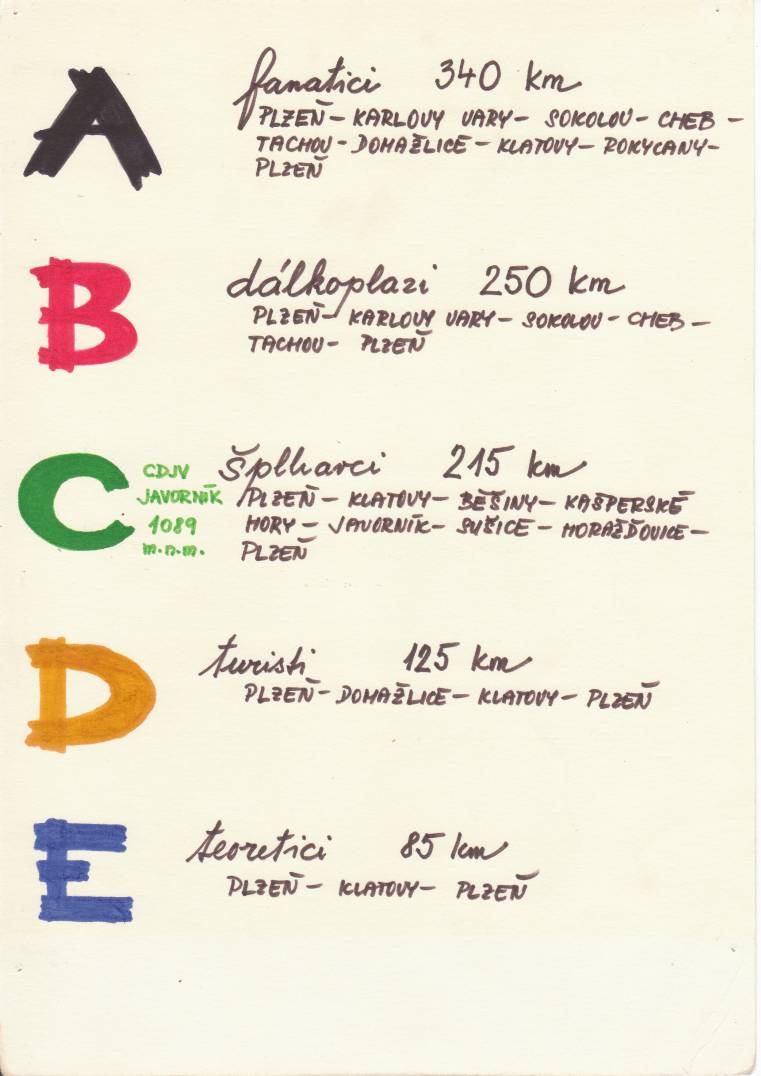 A
fanatici 340 km
PLZEŇ - KARLOVY VARY - SOKOLOV - CHEB -
TACHOV - DOMAŽLICE - KLATOVY - ROKYCANY -
PLZEŇ
B
dálkoplazi 250 km
PLZEŇ - KARLOVY VARY - SOKOLOV - CHEB -
TACHOV - PLZEŇ
C
CDJV
JAVORNÍK
1089
m.n.m.
šplhavci 215 km
PLZEŇ - KLATOVY - BĚŠINY - KAŠPERSKÉ
HORY - JAVORNÍK - SUŠICE - HORAŽĎOVICE -
PLZEŇ
D
turisti 125 km
PLZEŇ - DOMAŽLICE - KLATOVY - PLZEŇ
E
teoretici 85 km
PLZEŇ - KLATOVY - PLZEŇ